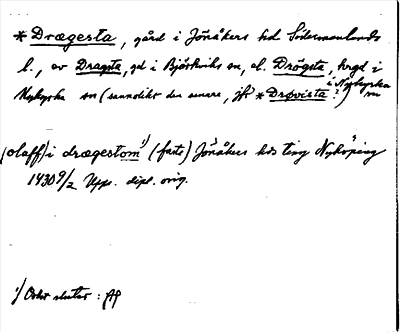 *Drægesta, gård i Jönåkers hd Södermanlands
l., av Dragsta, gd i Björkviks sn, el. Drögsta, hvgd i
Nykyrka sn (sannolikt den senare, jfr *Drøvista?) i Nykyrka sn
(olaff) i drægestom¹⁾ (fasta) Jönåkers hds ting Nyköping
1430 9/2 Upps. dipl. orig.
¹⁾ Ordet slutar :